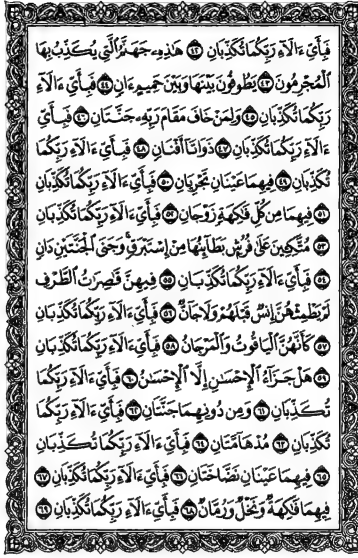 فَبِأَيِّ ءَالَآءِ رَبِّكُمَا تُكَذِّبَانِ ٤٢ هَٰذِهِۦ جَهَنَّمُ ٱلَّتِى يُكَذِّبُ بِهَا
ٱلْمُجْرِمُونَ ٤٣ يَطُوفُونَ بَيْنَهَا وَبَيْنَ حَمِيمٍ ءَانٍ ٤٤ فَبِأَيِّ ءَالَآءِ
رَبِّكُمَا تُكَذِّبَانِ ٤٥ وَلِمَنْ خَافَ مَقَامَ رَبِّهِۦ جَنَّتَانِ ٤٦ فَبِأَيِّ
ءَالَآءِ رَبِّكُمَا تُكَذِّبَانِ ٤٧ ذَوَاتَآ أَفْنَانٍ ٤٨ فَبِأَيِّ ءَالَآءِ رَبِّكُمَا
تُكَذِّبَانِ ٤٩ فِيهِمَا عَيْنَانِ تَجْرِيَانِ ٥٠ فَبِأَيِّ ءَالَآءِ رَبِّكُمَا تُكَذِّبَانِ
٥١ فِيهِمَا مِن كُلِّ فَٰكِهَةٍ زَوْجَانِ ٥٢ فَبِأَيِّ ءَالَآءِ رَبِّكُمَا تُكَذِّبَانِ
٥٣ مُتَّكِـِٔينَ عَلَىٰ فُرُشٍۭ بَطَآئِنُهَا مِنْ إِسْتَبْرَقٍۚ وَجَنَى ٱلْجَنَّتَيْنِ دَانٍ
٥٤ فَبِأَيِّ ءَالَآءِ رَبِّكُمَا تُكَذِّبَانِ ٥٥ فِيهِنَّ قَٰصِرَٰتُ ٱلطَّرْفِ
لَمْ يَطْمِثْهُنَّ إِنسٌ قَبْلَهُمْ وَلَا جَآنٌّ ٥٦ فَبِأَيِّ ءَالَآءِ رَبِّكُمَا تُكَذِّبَانِ
٥٧ كَأَنَّهُنَّ ٱلْيَاقُوتُ وَٱلْمَرْجَانُ ٥٨ فَبِأَيِّ ءَالَآءِ رَبِّكُمَا تُكَذِّبَانِ
٥٩ هَلْ جَزَآءُ ٱلْإِحْسَٰنِ إِلَّا ٱلْإِحْسَٰنُ ٦٠ فَبِأَيِّ ءَالَآءِ رَبِّكُمَا
تُكَذِّبَانِ ٦١ وَمِن دُونِهِمَا جَنَّتَانِ ٦٢ فَبِأَيِّ ءَالَآءِ رَبِّكُمَا
تُكَذِّبَانِ ٦٣ مُدْهَآمَّتَانِ ٦٤ فَبِأَيِّ ءَالَآءِ رَبِّكُمَا تُكَذِّبَانِ
٦٥ فِيهِمَا عَيْنَانِ نَضَّاخَتَانِ ٦٦ فَبِأَيِّ ءَالَآءِ رَبِّكُمَا تُكَذِّبَانِ ٦٧
فِيهِمَا فَٰكِهَةٌ وَنَخْلٌ وَرُمَّانٌ ٦٨ فَبِأَيِّ ءَالَآءِ رَبِّكُمَا تُكَذِّبَانِ ٦٩